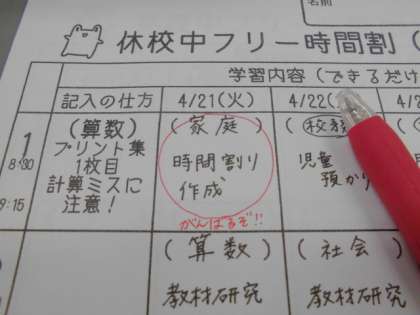 名前
休校中フリー時間割(
学習内容(できるだけ
記入の仕方
4/21(火)
4/22(
1
8:30
9:15
(算数)
プリント集
1枚目
計算ミスに
注意!
(家庭)
時間割り
作成
がんばるぞ!!
児童
預かり
(算数)
教材研究
(社会)
教材研究